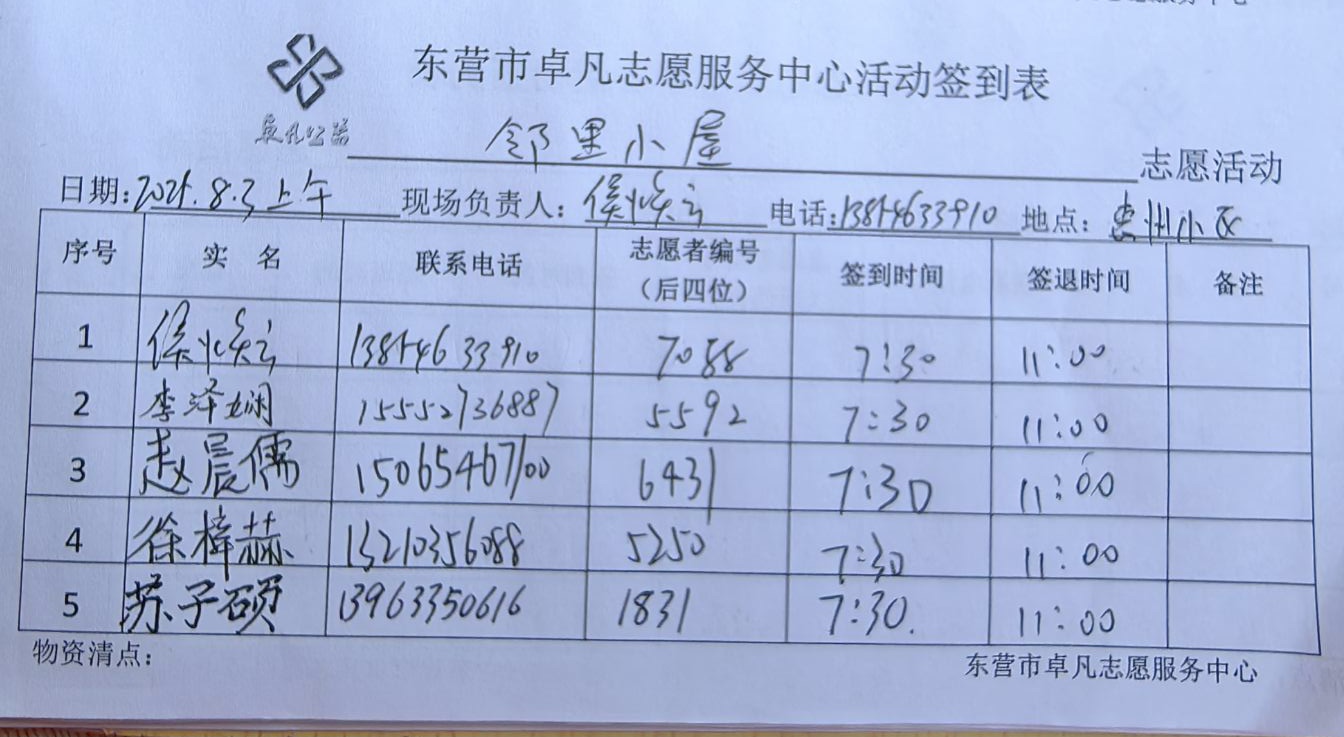 东营市卓凡志愿服务中心活动签到表
卓凡公益
邻里小屋 志愿活动
日期: 2021.8.3上午 现场负责人: 侯 电话: 13854633910 地点: 惠州小区
序号 实 名 联系电话 志愿者编号（后四位） 签到时间 签退时间 备注
1 侯 13854633910 7088 7:30 11:00
2 李泽娴 15552736887 5592 7:30 11:00
3 赵晨儒 15065467100 6431 7:30 11:00
4 徐梓赫 13210356088 5250 7:30 11:00
5 苏子硕 13963350616 1831 7:30. 11:00
物资清点: 东营市卓凡志愿服务中心